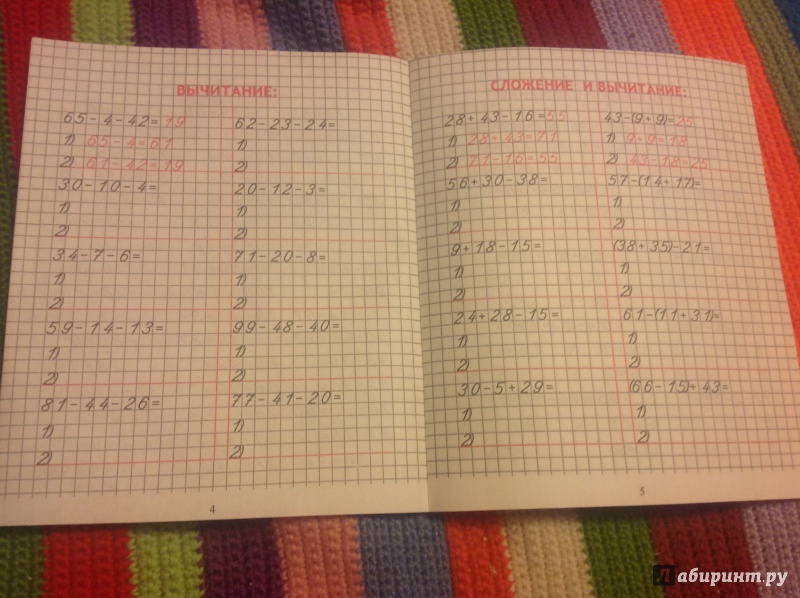 ВЫЧИТАНИЕ:
65-4-42=19
1) 65-4=61
2) 61-42=19
30-10-4=
1)
2)
34-7-6=
1)
2)
59-14-13=
1)
2)
81-44-26=
1)
2)
62-23-24=
1)
2)
20-12-3=
1)
2)
71-20-8=
1)
2)
99-48-40=
1)
2)
77-41-20=
1)
2)
4
СЛОЖЕНИЕ И ВЫЧИТАНИЕ:
28+43-16=55
1) 28+43=71
2) 71-16=55
56+30-38=
1)
2)
9+18-15=
1)
2)
24+28-15=
1)
2)
30-5+29=
1)
2)
43-(9+9)=25
1) 9+9=18
2) 43-18=25
57-(14+17)=
1)
2)
(38+35)-21=
1)
2)
61-(11+31)=
1)
2)
(66-15)+43=
1)
2)
5
Лабиринт.ру